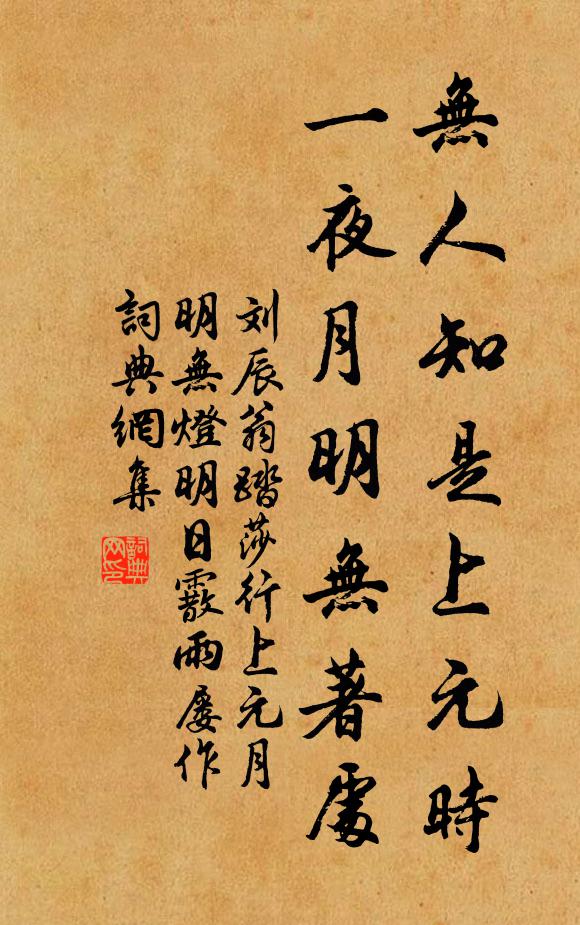 無人知是上元時
一夜月明無著處
刘辰翁踏莎行上元月
明無燈明日霰雨屡作
詞典網集
詞典网印